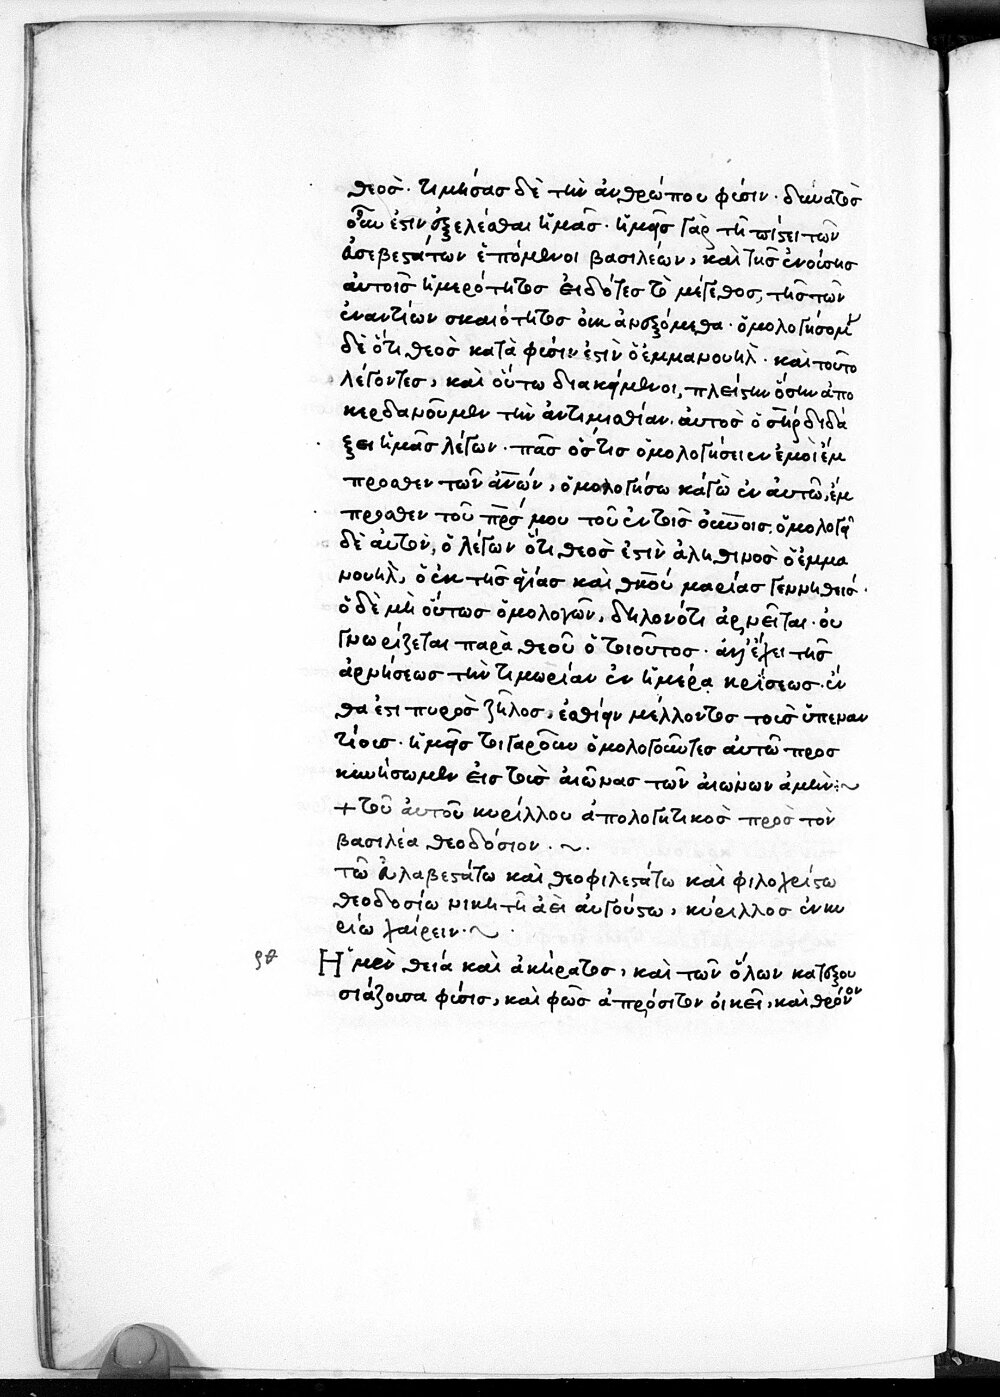 θεὸς· τιμήσας δὲ τὴν ἀνθρώπου φύσιν· δυνατὸς
οὖν ἐστιν ἐξελέσθαι ἡμᾶς· ἡμεῖς γὰρ τῇ πίστει τῶν
ἀσεβεστάτων ἑπόμενοι βασιλέων, καὶ τῆς ἐνούσης
αὐτοῖς ἡμερότητος εἰδότες τὸ μέγεθος, τῆς τῶν
ἐναντίων σκαιότητος οὐκ ἀνεξόμεθα· ὁμολογήσομ
δὲ ὅτι θεὸς κατὰ φύσιν ἐστὶν ὁ ἐμμανουὴλ· καὶ τοῦτο
λέγοντες, καὶ οὕτω διακείμενοι, πλείστην ὅσην ἀπο
κερδανοῦμεν τὴν ἀντιμισθίαν. αὐτὸς ὁ σηρ διδά
ξει ἡμᾶς λέγων· πᾶς ὅστις ὁμολογήσει ἐν ἐμοὶ ἔμ
προσθεν τῶν ἀνων, ὁμολογήσω κἀγὼ ἐν αὐτῶ, ἔμ
προσθεν τοῦ πρσ μου τοῦ ἐν τοῖς οὐνοις· ὁμολογεῖ
δὲ αὐτὸν, ὁ λέγων ὅτι θεὸς ἐστὶν ἀληθινὸς ὁ ἐμμα
νουὴλ, ὁ ἐκ τῆς ἁγίας καὶ θκου μαρίας γεννηθείς·
ὁ δὲ μὴ οὕτως ὁμολογῶν, δηλονότι ἀρνεῖται· οὐ
γνωρίζεται παρὰ θεοῦ ὁ τοιοῦτος· ἀντέχει τῆς
ἀρνήσεως τὴν τιμωρίαν ἐν ἡμέρα κρίσεως· ἔν
θα ἐστι πυρὸς ζῆλος, ἐσθίειν μέλλοντος τοὺς ὑπεναν
τίους· ἡμεῖς τοιγαροῦν ὁμολογοῦντες αὐτῶ προς
κυνήσωμεν εἰς τοὺς αἰῶνας τῶν αἰώνων ἀμήν:~
+ τοῦ αὐτοῦ κυρίλλου ἀπολογητικὸς πρὸς τὸν
βασιλέα θεοδόσιον·~·
τῶ εὐλαβεστάτω καὶ θεοφιλεστάτω καὶ φιλοχρίστω
θεοδοσίω νικητῇ ἀεὶ αὐγούστω, κύριλλος ἐν κυ
ρίω χαίρειν·~·
Ἡ μὲν θεία καὶ ἀκήρατος, καὶ τῶν ὅλων κατεξου
σιάζουσα φύσις, καὶ φῶς ἀπρόσιτον οἰκεῖ, καὶ θρόνον